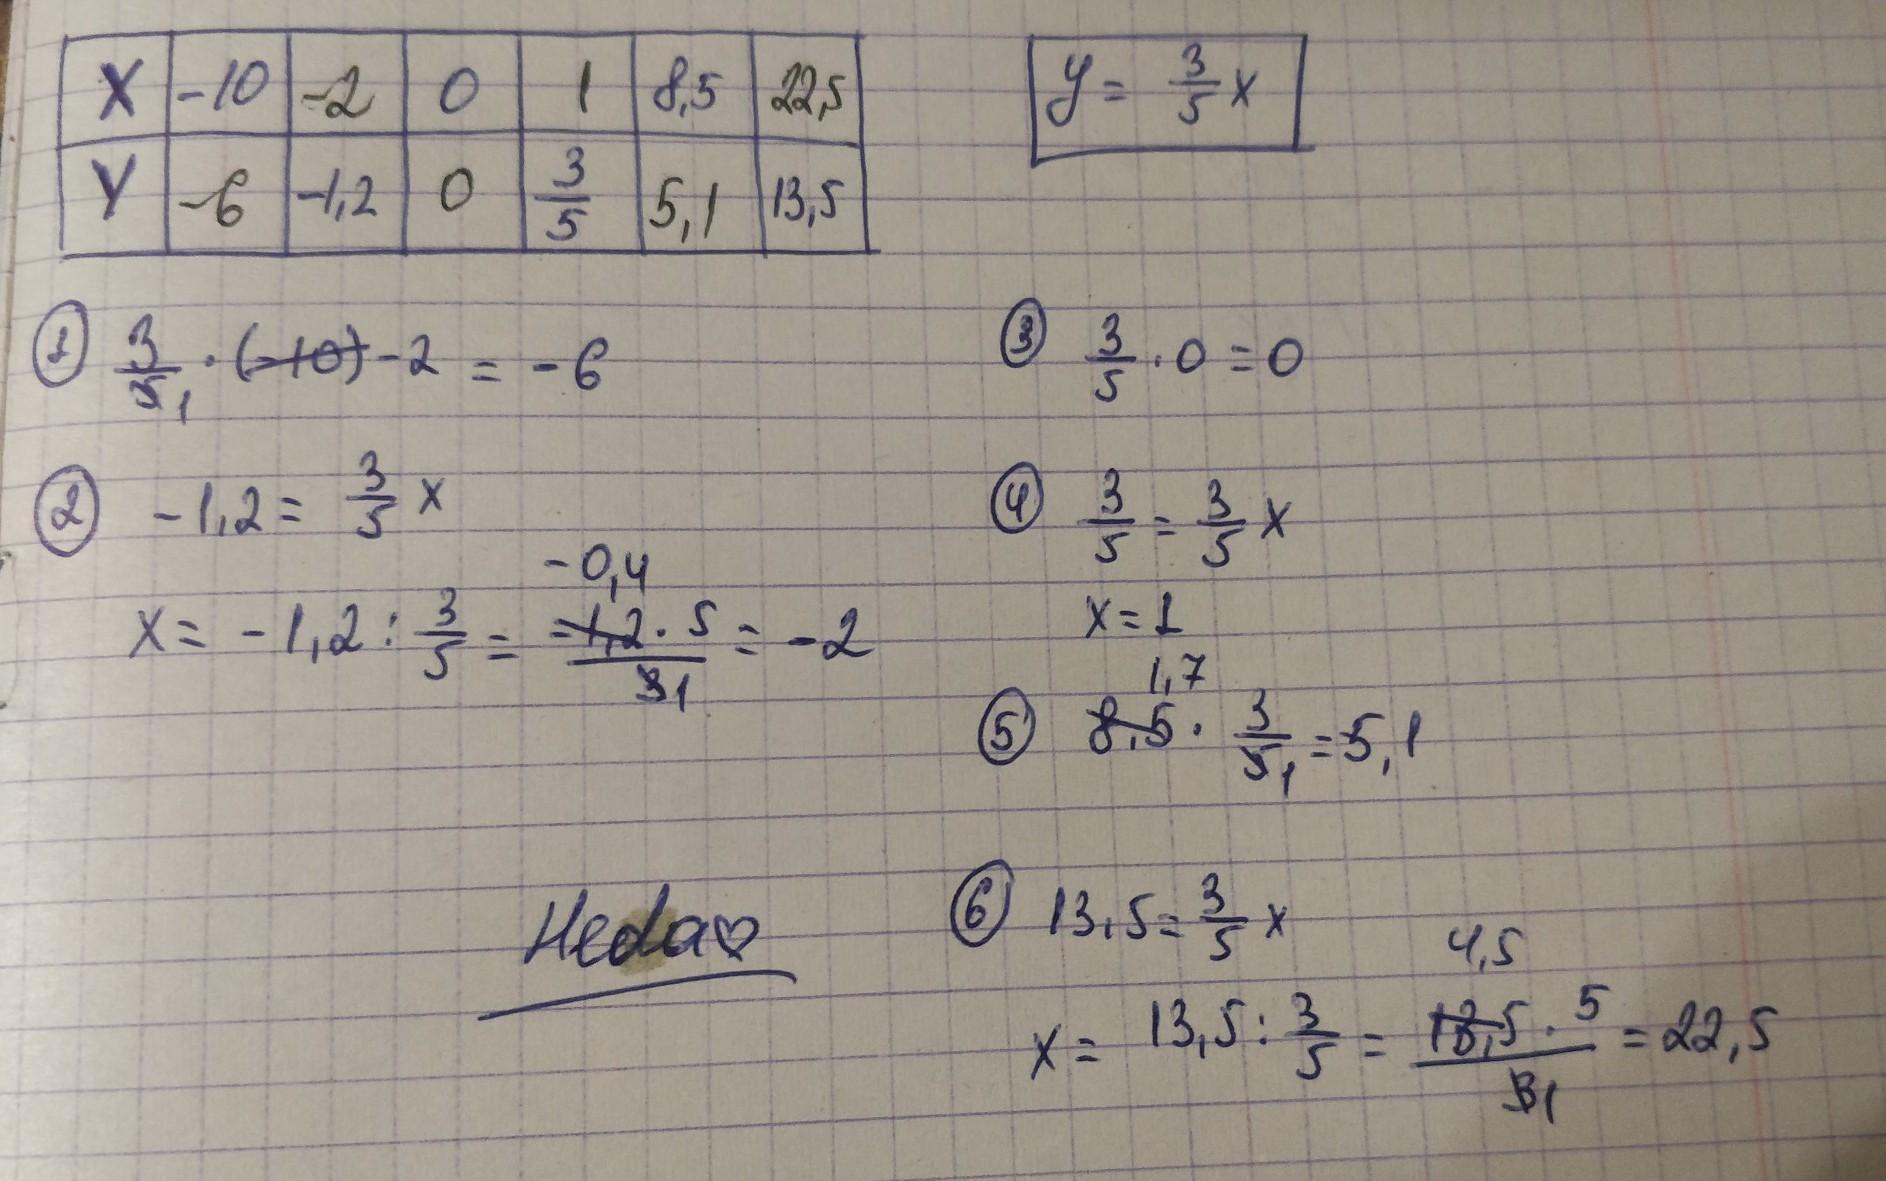 X -10 -2 0 1 8,5 22,5
Y -6 -1,2 0 3/5 5,1 13,5
y = 3/5 x
① 3/5 1 · (-10) -2 = -6
② -1,2 = 3/5 x
-0,4
x = -1,2 : 3/5 = -1,2 · 5 / 3 1 = -2
③ 3/5 · 0 = 0
④ 3/5 = 3/5 x
x = 1
1,7
⑤ 8,5 · 3/5 1 = 5,1
⑥ 13,5 = 3/5 x
4,5
x = 13,5 : 3/5 = 13,5 · 5 / 3 1 = 22,5
Heda♡